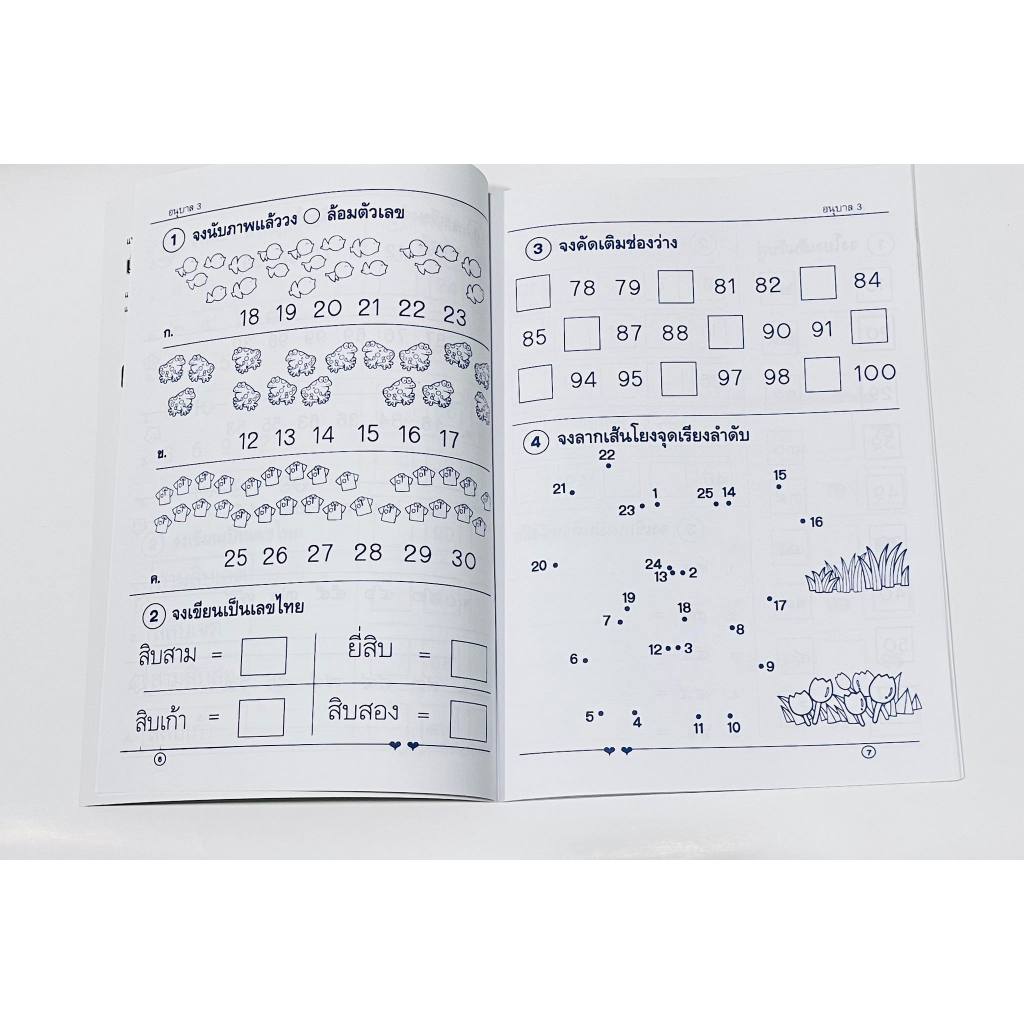 อนุบาล 3
1 จงนับภาพแล้ววง ◯ ล้อมตัวเลข
ก. 18 19 20 21 22 23
ข. 12 13 14 15 16 17
ค. 25 26 27 28 29 30
2 จงเขียนเป็นเลขไทย
สิบสาม = ยี่สิบ =
สิบเก้า = สิบสอง =
6
อนุบาล 3
3 จงคัดเติมช่องว่าง
78 79 81 82 84
85 87 88 90 91
94 95 97 98 100
4 จงลากเส้นโยงจุดเรียงลำดับ
22
15
21 23 1 25 14
16
20 24 13 2
19 18 17
7 8
12 3
6 9
5 4 11 10
7